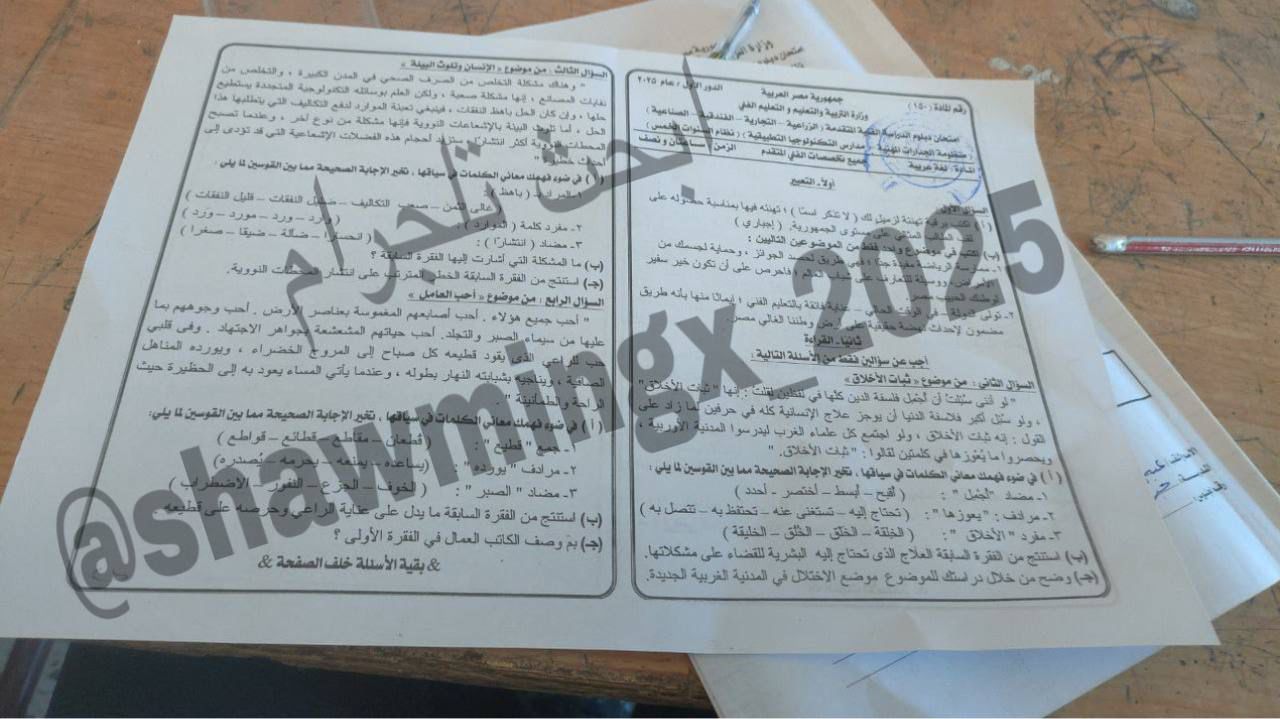 جمهورية مصر العربية
رقم المادة (١٥٠)
وزارة التربية والتعليم و التعليم الفني
الدور الأول : عام ٢٠٢٥
امتحان دبلوم الدراسة الفنية المتقدمة (الزراعية – التجارية – الفندقية – الصناعية)
مدارس التكنولوجيا التطبيقية) (نظام السنوات الخمس)
المادة : لغة عربية
جميع تخصصات الفني المتقدم
الزمن : ساعتان و نصف
أولاً- التعبير
السؤال الأول
تهنئة لزميل لك ( لا تذكر اسمًا ) ؛ تهنئه فيها بمناسبة حصوله على
مستوى الجمهورية. ( إجباري )
(ب) اكتب في موضوع واحد فقط من الموضوعين التاليين :
فاحرص على أن تكون خير سفير
إيمانًا منها بأنه طريق
وطننا الغالي مصر.
ثانيا- القراءة
أجب عن سؤالين فقط من الأسئلة التالية :
السؤال الثاني : من موضوع « ثبات الأخلاق »
" لو أنني سئلت أن أجمل فلسفة الدين كلها في لفظين لقلت : إنها " ثبات الأخلاق"
، ولو سئل أكبر فلاسفة الدنيا أن يوجز علاج الإنسانية كله في حرفين لما زاد على
القول : إنه ثبات الأخلاق ، ولو اجتمع كل علماء الغرب ليدرسوا المدنية الأوربية ،
ويحصروا ما يعوزها في كلمتين لقالوا : " ثبات الأخلاق. "
( أ ) في ضوء فهمك معاني الكلمات في سياقها، تخير الإجابة الصحيحة مما بين القوسين لما يلي :
١- مضاد "أجمل" : ( أقبح – أبسط – أختصر - أحدد )
٢- مرادف : "يعوزها" : ( تحتاج إليه – تستغنى عنه – تحتفظ به – تتصل به )
٣- مفرد " الأخلاق" : ( الخِلقة – الخَلق – الخُلق – الخليقة )
(ب) استنتج من الفقرة السابقة العلاج الذى تحتاج إليه البشرية للقضاء على مشكلاتها.
(جـ) وضح من خلال دراستك للموضوع موضع الاختلال في المدنية الغربية الجديدة.
السؤال الثالث : من موضوع « الإنسان وتلوث البيئة »
" وهناك مشكلة التخلص من الصرف الصحي في المدن الكبيرة ، والتخلص من
نفايات المصانع ، إنها مشكلة صعبة ، ولكن العلم بوسائله التكنولوجية المتجددة يستطيع
حلها ، وإن كان الحل باهظ النفقات ، فينبغي تعبئة الموارد لدفع التكاليف التي يتطلبها هذا
الحل ، أما تلوث البيئة بالإشعاعات النووية فإنها مشكلة من نوع آخر ، وعندما تصبح
المحطات النووية أكثر انتشارًا ستزيد أحجام هذه الفضلات الإشعاعية التي قد تؤدى إلى
( أ ) في ضوء فهمك معاني الكلمات في سياقها، تخير الإجابة الصحيحة مما بين القوسين لما يلي:
١- المراد بـ ( باهظ ) :
غالى الثمن – صعب التكاليف – ضئيل النفقات – قليل النفقات )
٢- مفرد كلمة ( الموارد ) : – ورد – مورد – ورد )
٣- مضاد ( انتشارًا ) : ( انحسارًا – ضآلة – ضيقا – صغرا )
(ب) ما المشكلة التي أشارت إليها الفقرة السابقة ؟
(جـ) استنتج من الفقرة السابقة الخطر المترتب على انتشار المحطات النووية.
السؤال الرابع : من موضوع « أحب العامل »
" أحب جميع هؤلاء . أحب أصابعهم المغموسة بعناصر الأرض . أحب وجوههم بما
عليها من سيماء الصبر والتجلد. أحب حياتهم المشعشعة بجواهر الاجتهاد . وفى قلبي
حب للراعي الذى يقود قطيعه كل صباح إلى المروج الخضراء ، ويورده المناهل
الصافية ، ويناجيه بشبابته النهار بطوله ، وعندما يأتي المساء يعود به إلى الحظيرة حيث
الراحة والطمأنينة " .
( أ ) في ضوء فهمك معاني الكلمات في سياقها، تخير الإجابة الصحيحة مما بين القوسين لما يلي:
١- جمع " قطيع " : ( قُطعان – مقاطع – قطائع – قواطع )
٢- مرادف " يورده " : (يساعده – يمنعه – يحرمه – يُصدره)
٣- مضاد " الصبر " : ( الخوف – الجزع – النفور – الاضطراب )
(ب) استنتج من الفقرة السابقة ما يدل على عناية الراعي وحرصه على قطيعه
(جـ) بمَ وصف الكاتب العمال في الفقرة الأولى ؟
& بقية الأسئلة خلف الصفحة &
ابحث تلجرام
@shawmingx_2025